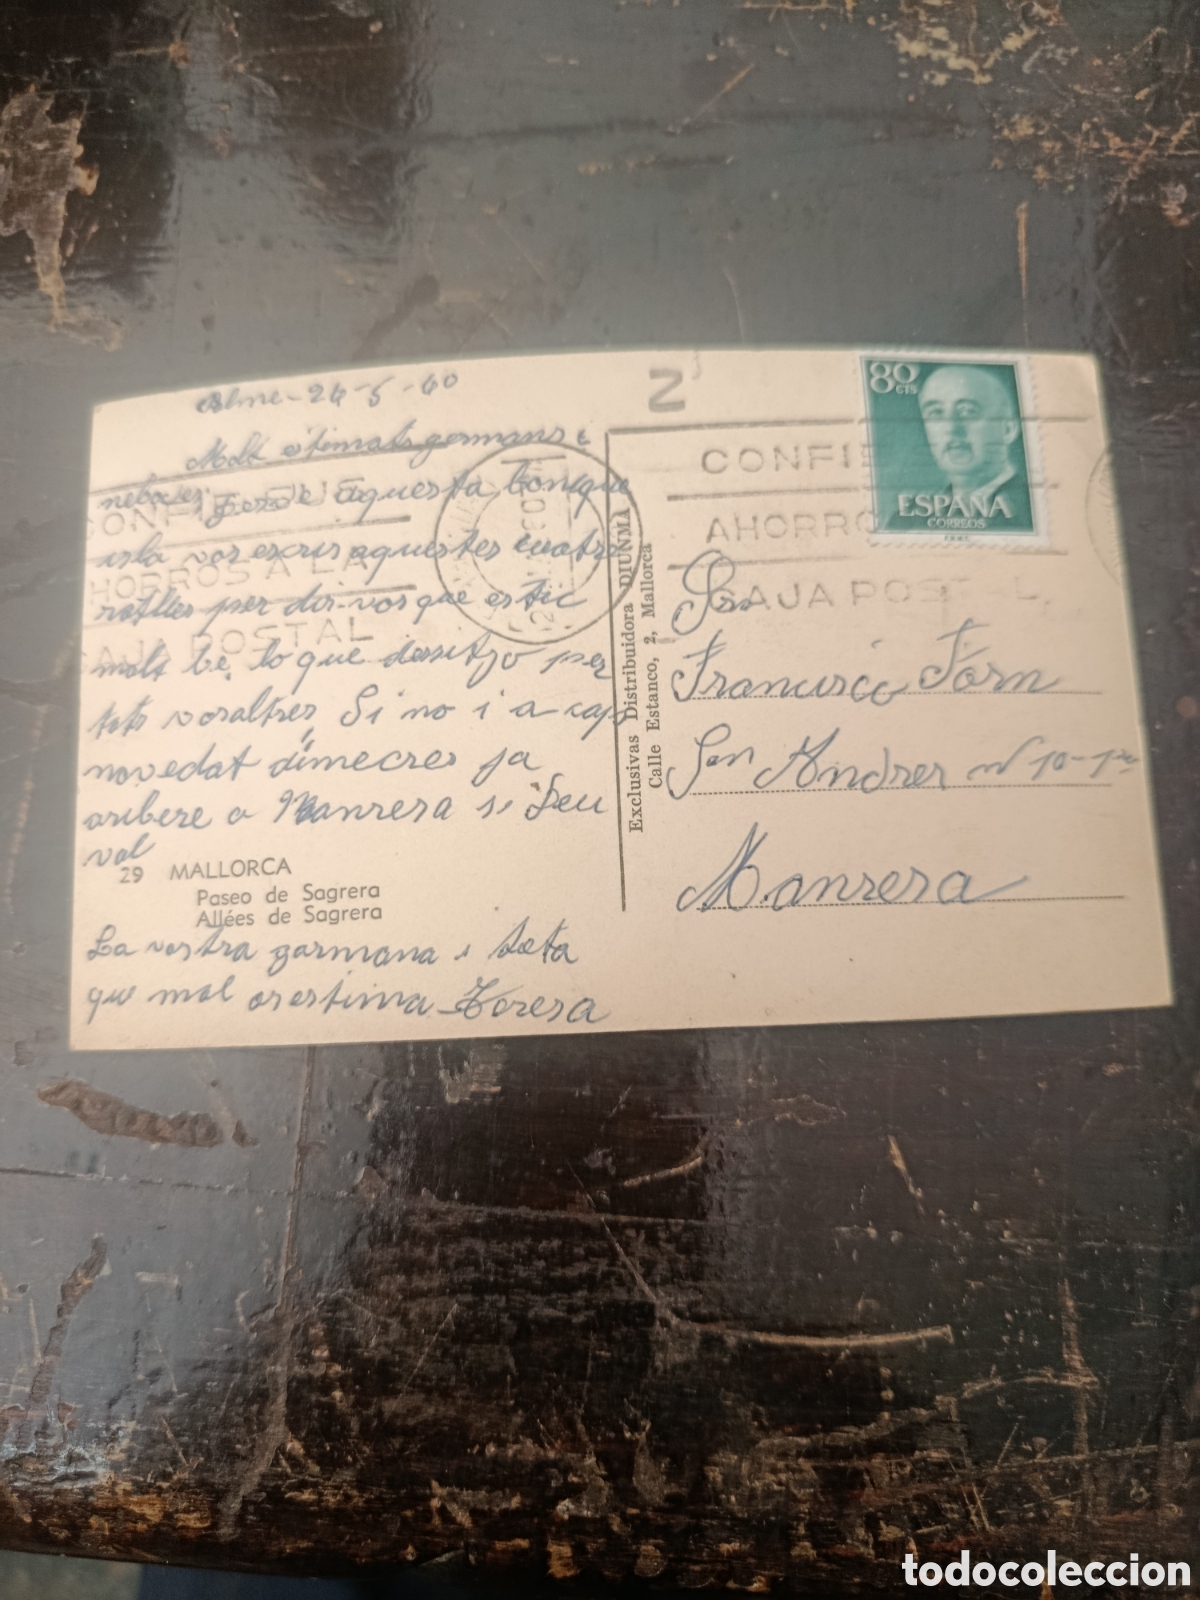 24-5-60
Molt estimats germans i
nebodes; desde aquesta bonique
isla vos escris aquestes cuatre
ratlles per dir-vos que estic
molt be, lo que dessitjo per
tots vosaltres, Si no i a cap
novedat dimecres ja
aribere a Manresa si Deu
vol
29 MALLORCA
Paseo de Sagrera
Allées de Sagrera
La vostra germana i tieta
que mol os estima - Teresa
Exclusivas Distribuidora DIUNMA
Calle Estanco, 2, Mallorca
Z
CONFIE
AHORRO
CAJA POSTAL
CONFIE
AHORROS A LA
CAJA POSTAL
80 CTS
ESPAÑA
CORREOS
F.N.M.T.
Srn
Francisco Torn
San Andres nº 10-1er
Manresa
todocoleccion